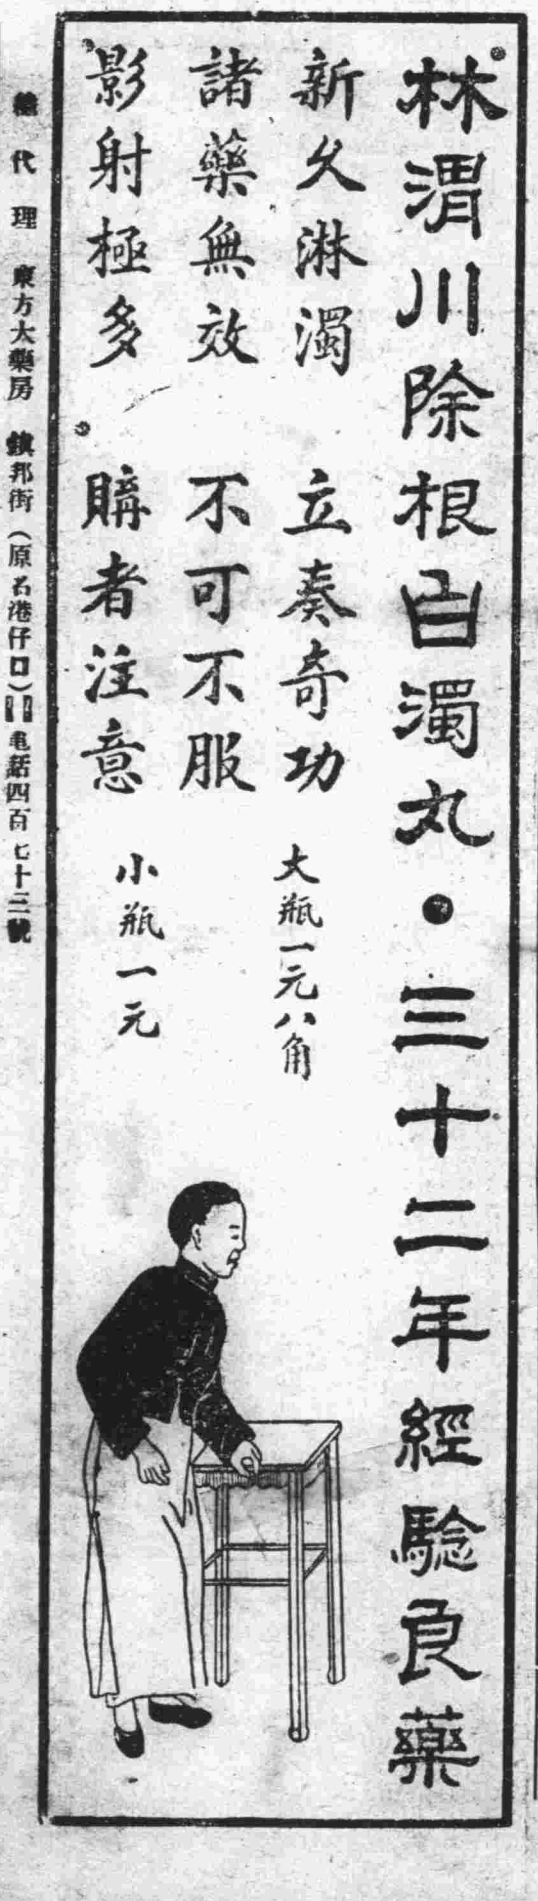 林渭川除根白濁丸●三十二年經驗良藥
新久淋濁 立奏奇功
諸藥無效 不可不服
影射極多 購者注意
大瓶一元八角
小瓶一元
總代理 東方大藥房 鎮邦街（原名港仔口）電話四百七十三號